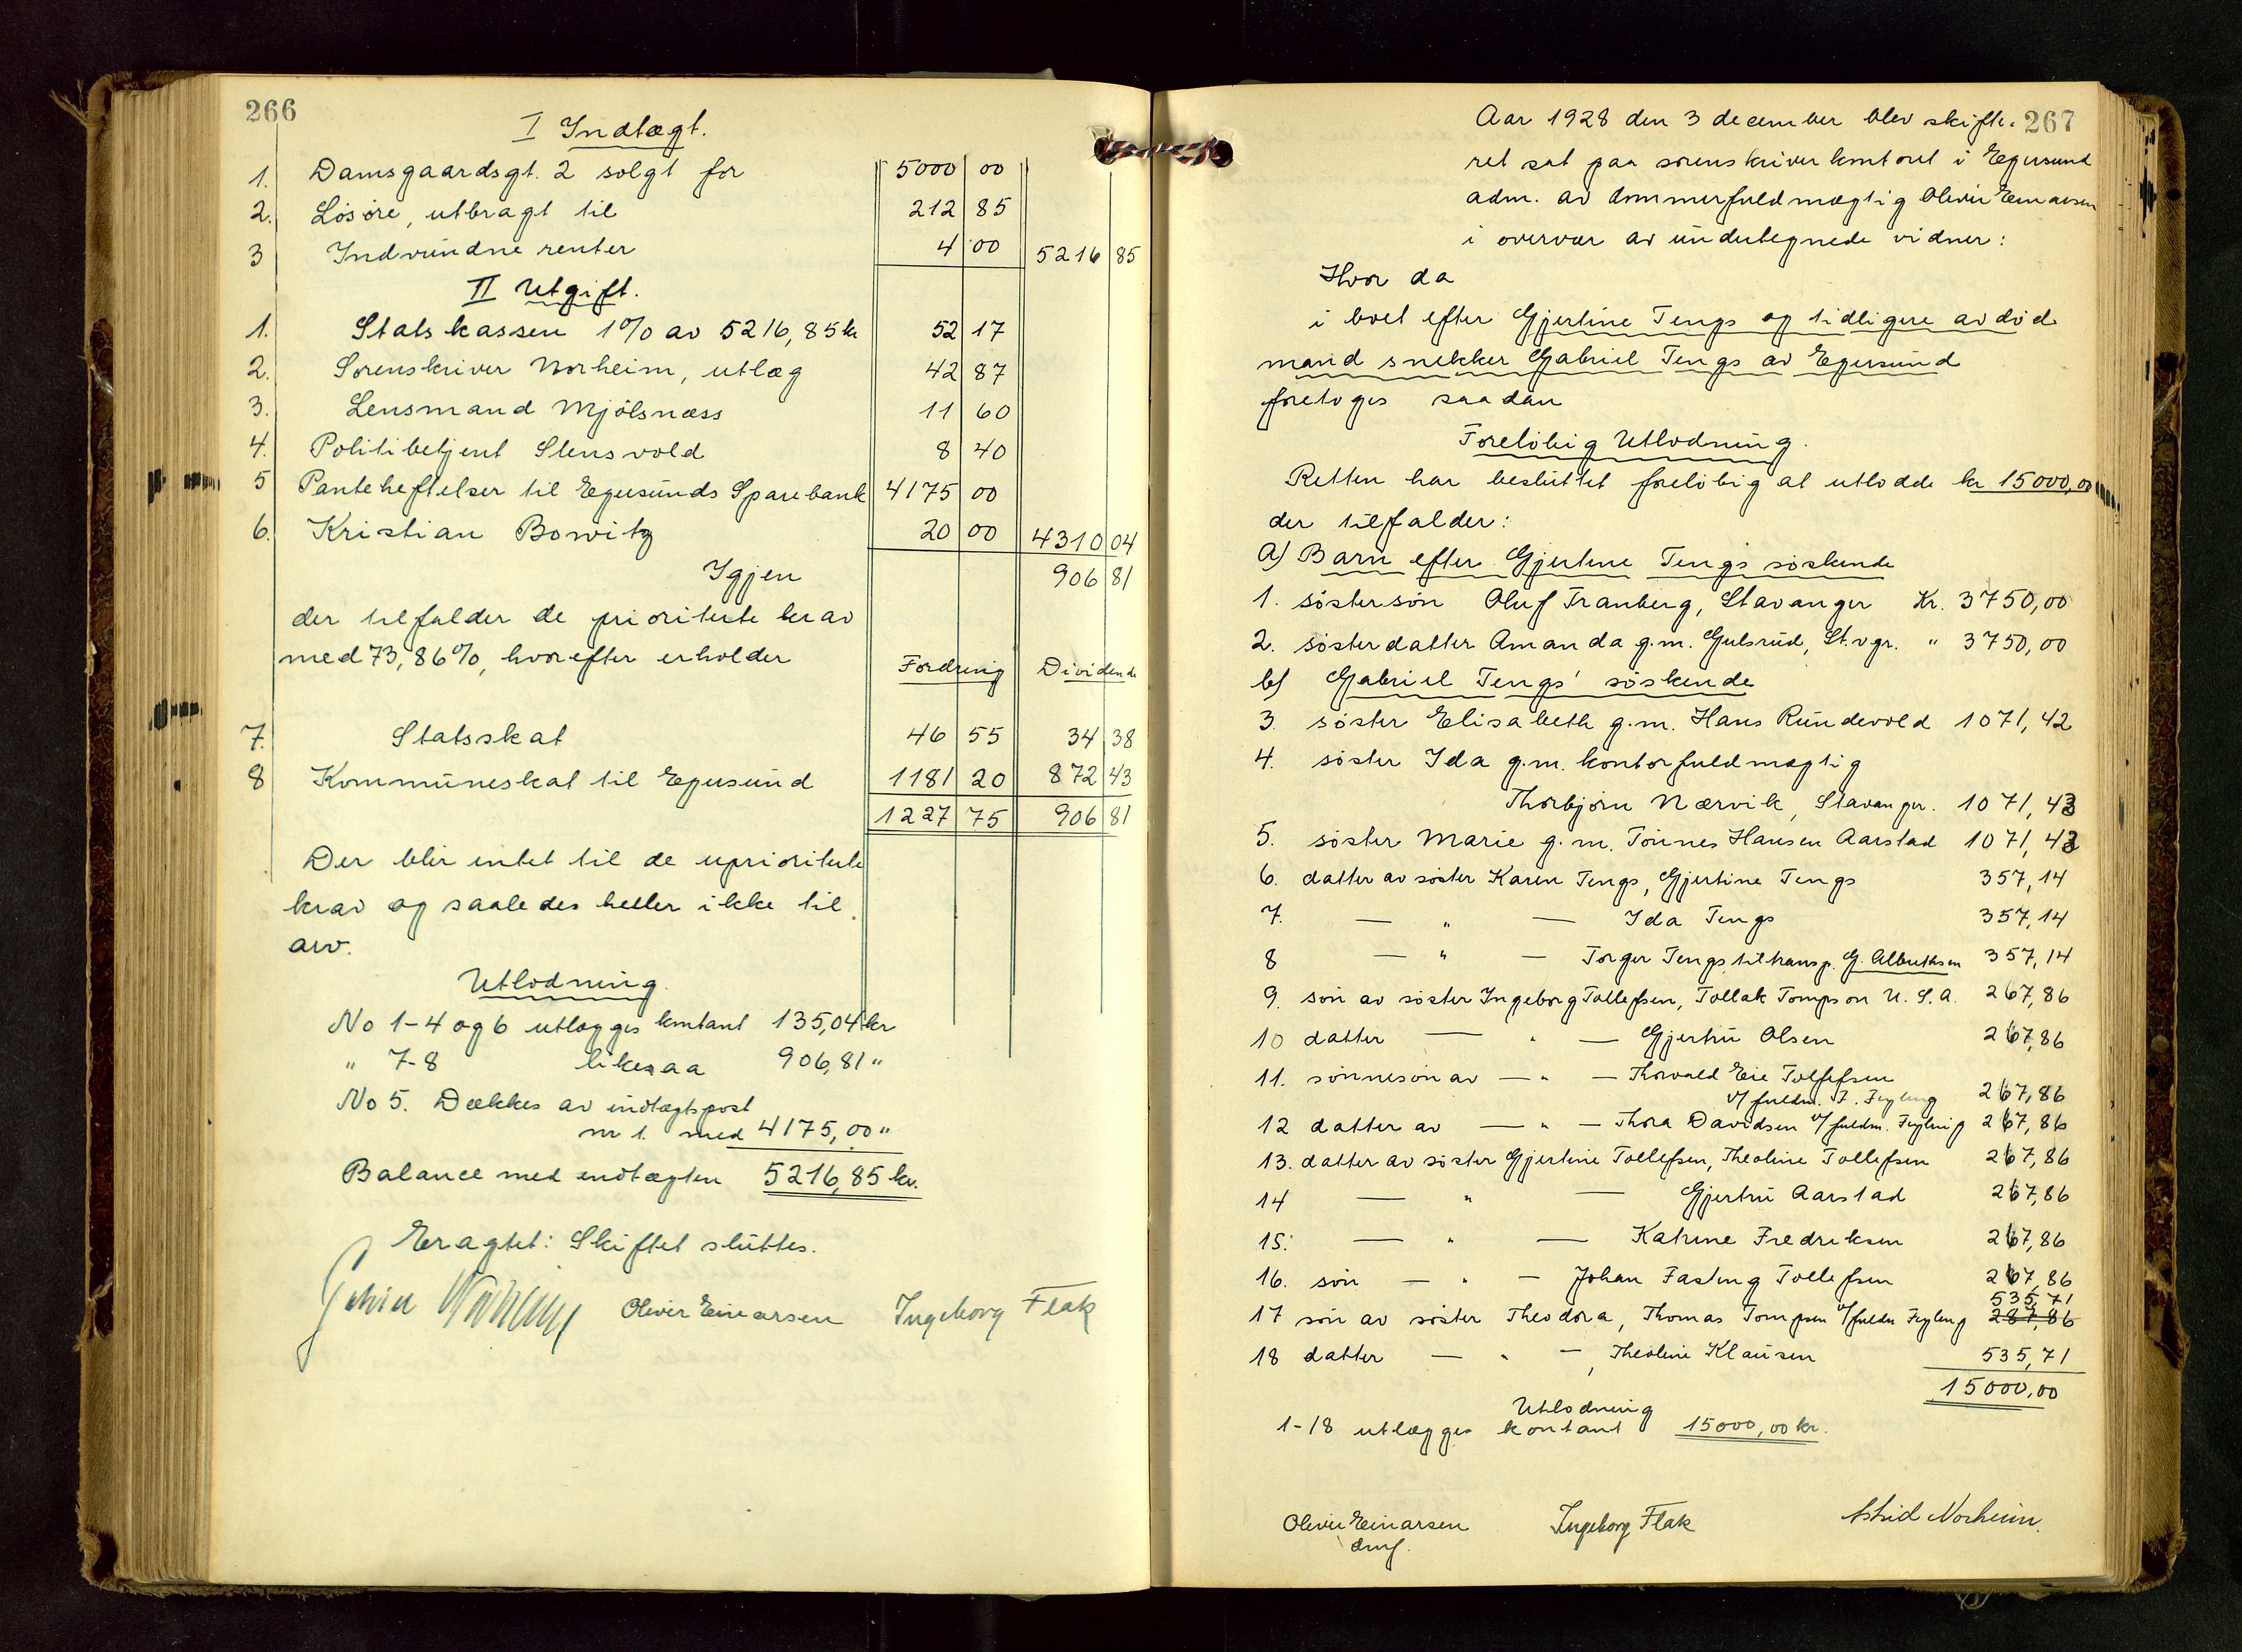 266
I Indtægt.
1. Damsgaardsgt. 2 solgt for 5000 00
2. Løsøre, utbragt til 212 85
3 Indvundne renter 4 00 5216 85
II Utgift.
1. Statskassen 1% av 5216,85 kr 52 17
2. Sorenskriver Norheim, utlæg 42 87
3. Lensmand Mjølsnæss 11 60
4. Politibetjent Stensvold 8 40
5 Panteheftelser til Egersunds Sparebank 4175 00
6. Kristian Bowitz 20 00 4310 04
Igjen 906 81
der tilfalder de prioriterte krav
med 73,86%, hvorefter erholder Fordring Dividende
7. Statsskat 46 55 34 38
8 Kommuneskat til Egersund 1181 20 872 43
1227 75 906 81
Der blir intet til de uprioriterte
krav og saaledes heller ikke til
arv.
Utlodning.
No 1-4 og 6 utlægges kontant 135,04 kr
" 7-8 likesaa 906,81 "
No 5. Dækkes av indtægtspost
nr 1. med 4175,00 "
Balance med indtægten 5216,85 kr.
Eragtet: Skiftet sluttes.
Norheim Oliver Einarsen Ingeborg Flak
267
Aar 1928 den 3 december blev skifte-
ret sat paa sorenskriverkontoret i Egersund
adm. av dommerfuldmægtig Oliver Einarsen
i overvær av undertegnede vidner:
Hvor da
i boet efter Gjertine Tengs og tidligere avdøde
mand snekker Gabriel Tengs av Egersund
foretoges saadan
Foreløbig Utlodning.
Retten har besluttet foreløbig at utlodde kr 15000,00
der tilfalder:
a) Barn efter Gjertine Tengs søskende
1. søstersøn Oluf Tranberg, Stavanger Kr. 3750,00
2. søsterdatter Amanda g.m. Gulsrud, St.vgr. " 3750,00
b) Gabriel Tengs' søskende
3 søster Elisabeth g.m. Hans Rundevold 1071,42
4. søster Ida g.m. kontorfuldmægtig
Thorbjørn Nærvik, Stavanger. 1071,43
5. søster Marie g.m. Tønnes Hansen Aarstad 1071,43
6. datter av søster Karen Tengs, Gjertine Tengs 357,14
7. — " — Ida Tengs 357,14
8 — " — Torger Tengs, tiltransp. G. Albrethsen 357,14
9. søn av søster Ingeborg Tollefsen, Tollak Tompson U.S.A. 267,86
10 datter — " — Gjertru Olsen 267,86
11. sønnesøn av — " — Thorvald Eie Tollefsen
v/ fuldm. F. Feyling 267,86
12 datter av — " — Thora Davidsen v/ fuldm. Feyling 267,86
13. datter av søster Gjertine Tollefsen, Theoline Tollefsen 267,86
14 — " — Gjertru Aarstad 267,86
15. — " — Katrine Fredriksen 267,86
16. søn — " — Johan Fasting Tollefsen 267,86
535,71
17 søn av søster Theodora, Thomas Tompson v/ fuldm Feyling 287,86
18 datter — " —, Theoline Klausen 535,71
15000,00
Utlodning
1-18 utlægges kontant 15000,00 kr.
Oliver Einarsen Ingeborg Flak Astrid Norheim.
dmf.